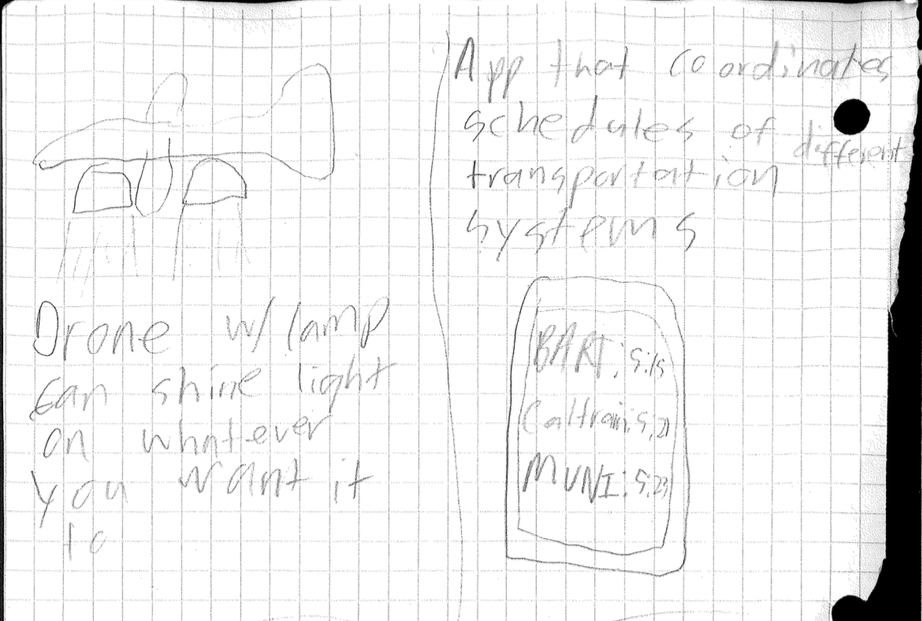 Drone w/ lamp
can shine light
on whatever
you want it
to
App that coordinates
schedules of different
transportation
systems
BART: 5:15
Caltrain: 5:21
MUNI: 5:23